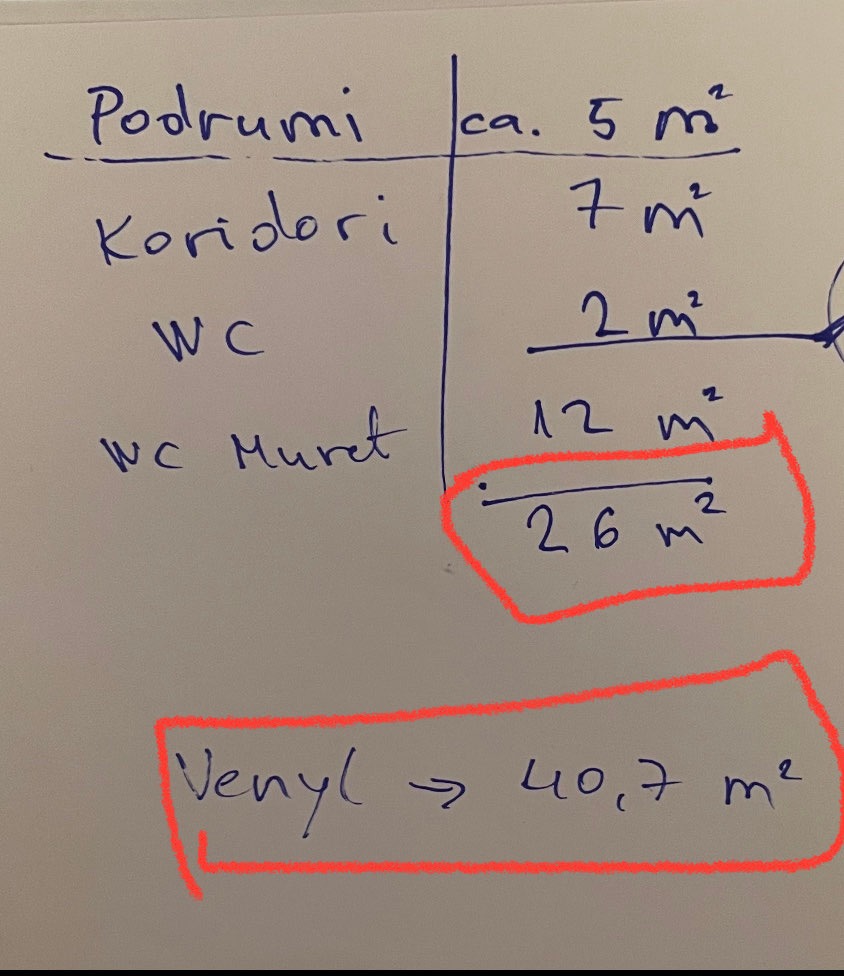 Podrumi ca. 5 m²
Koridori 7 m²
WC 2 m²
WC Muret 12 m²
26 m²
Venyl → 40,7 m²